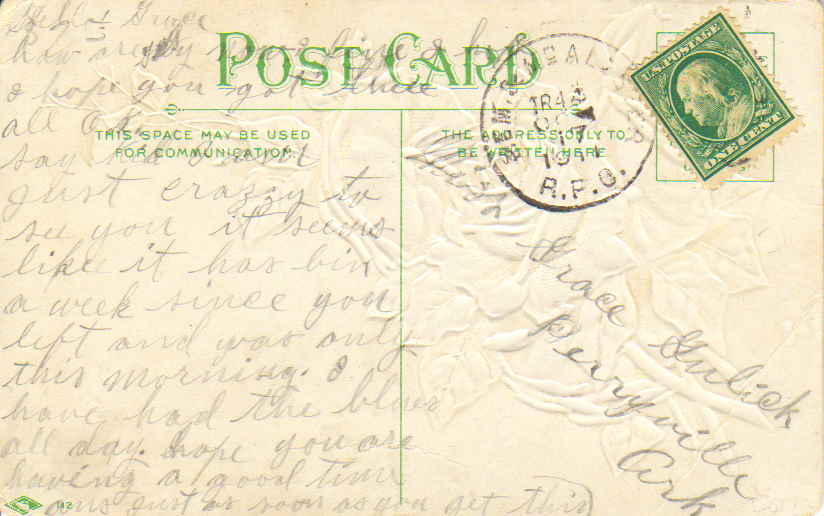 Hello Grace
how are you? fine I hope
I hope you got there
all O.K.
say kid I am
just crazzy to
see you it seems
like it has bin
a week since you
left and was only
this morning. I
have had the blues
all day. hope you are
having a good time
ans just as soon as you get this
POST CARD
THIS SPACE MAY BE USED
FOR COMMUNICATION.
THE ADDRESS ONLY TO
BE WRITTEN HERE
Miss
Grace Gulick
Perryville
Ark
TR 43
1911
R.P.O.
U.S. POSTAGE
ONE CENT
142